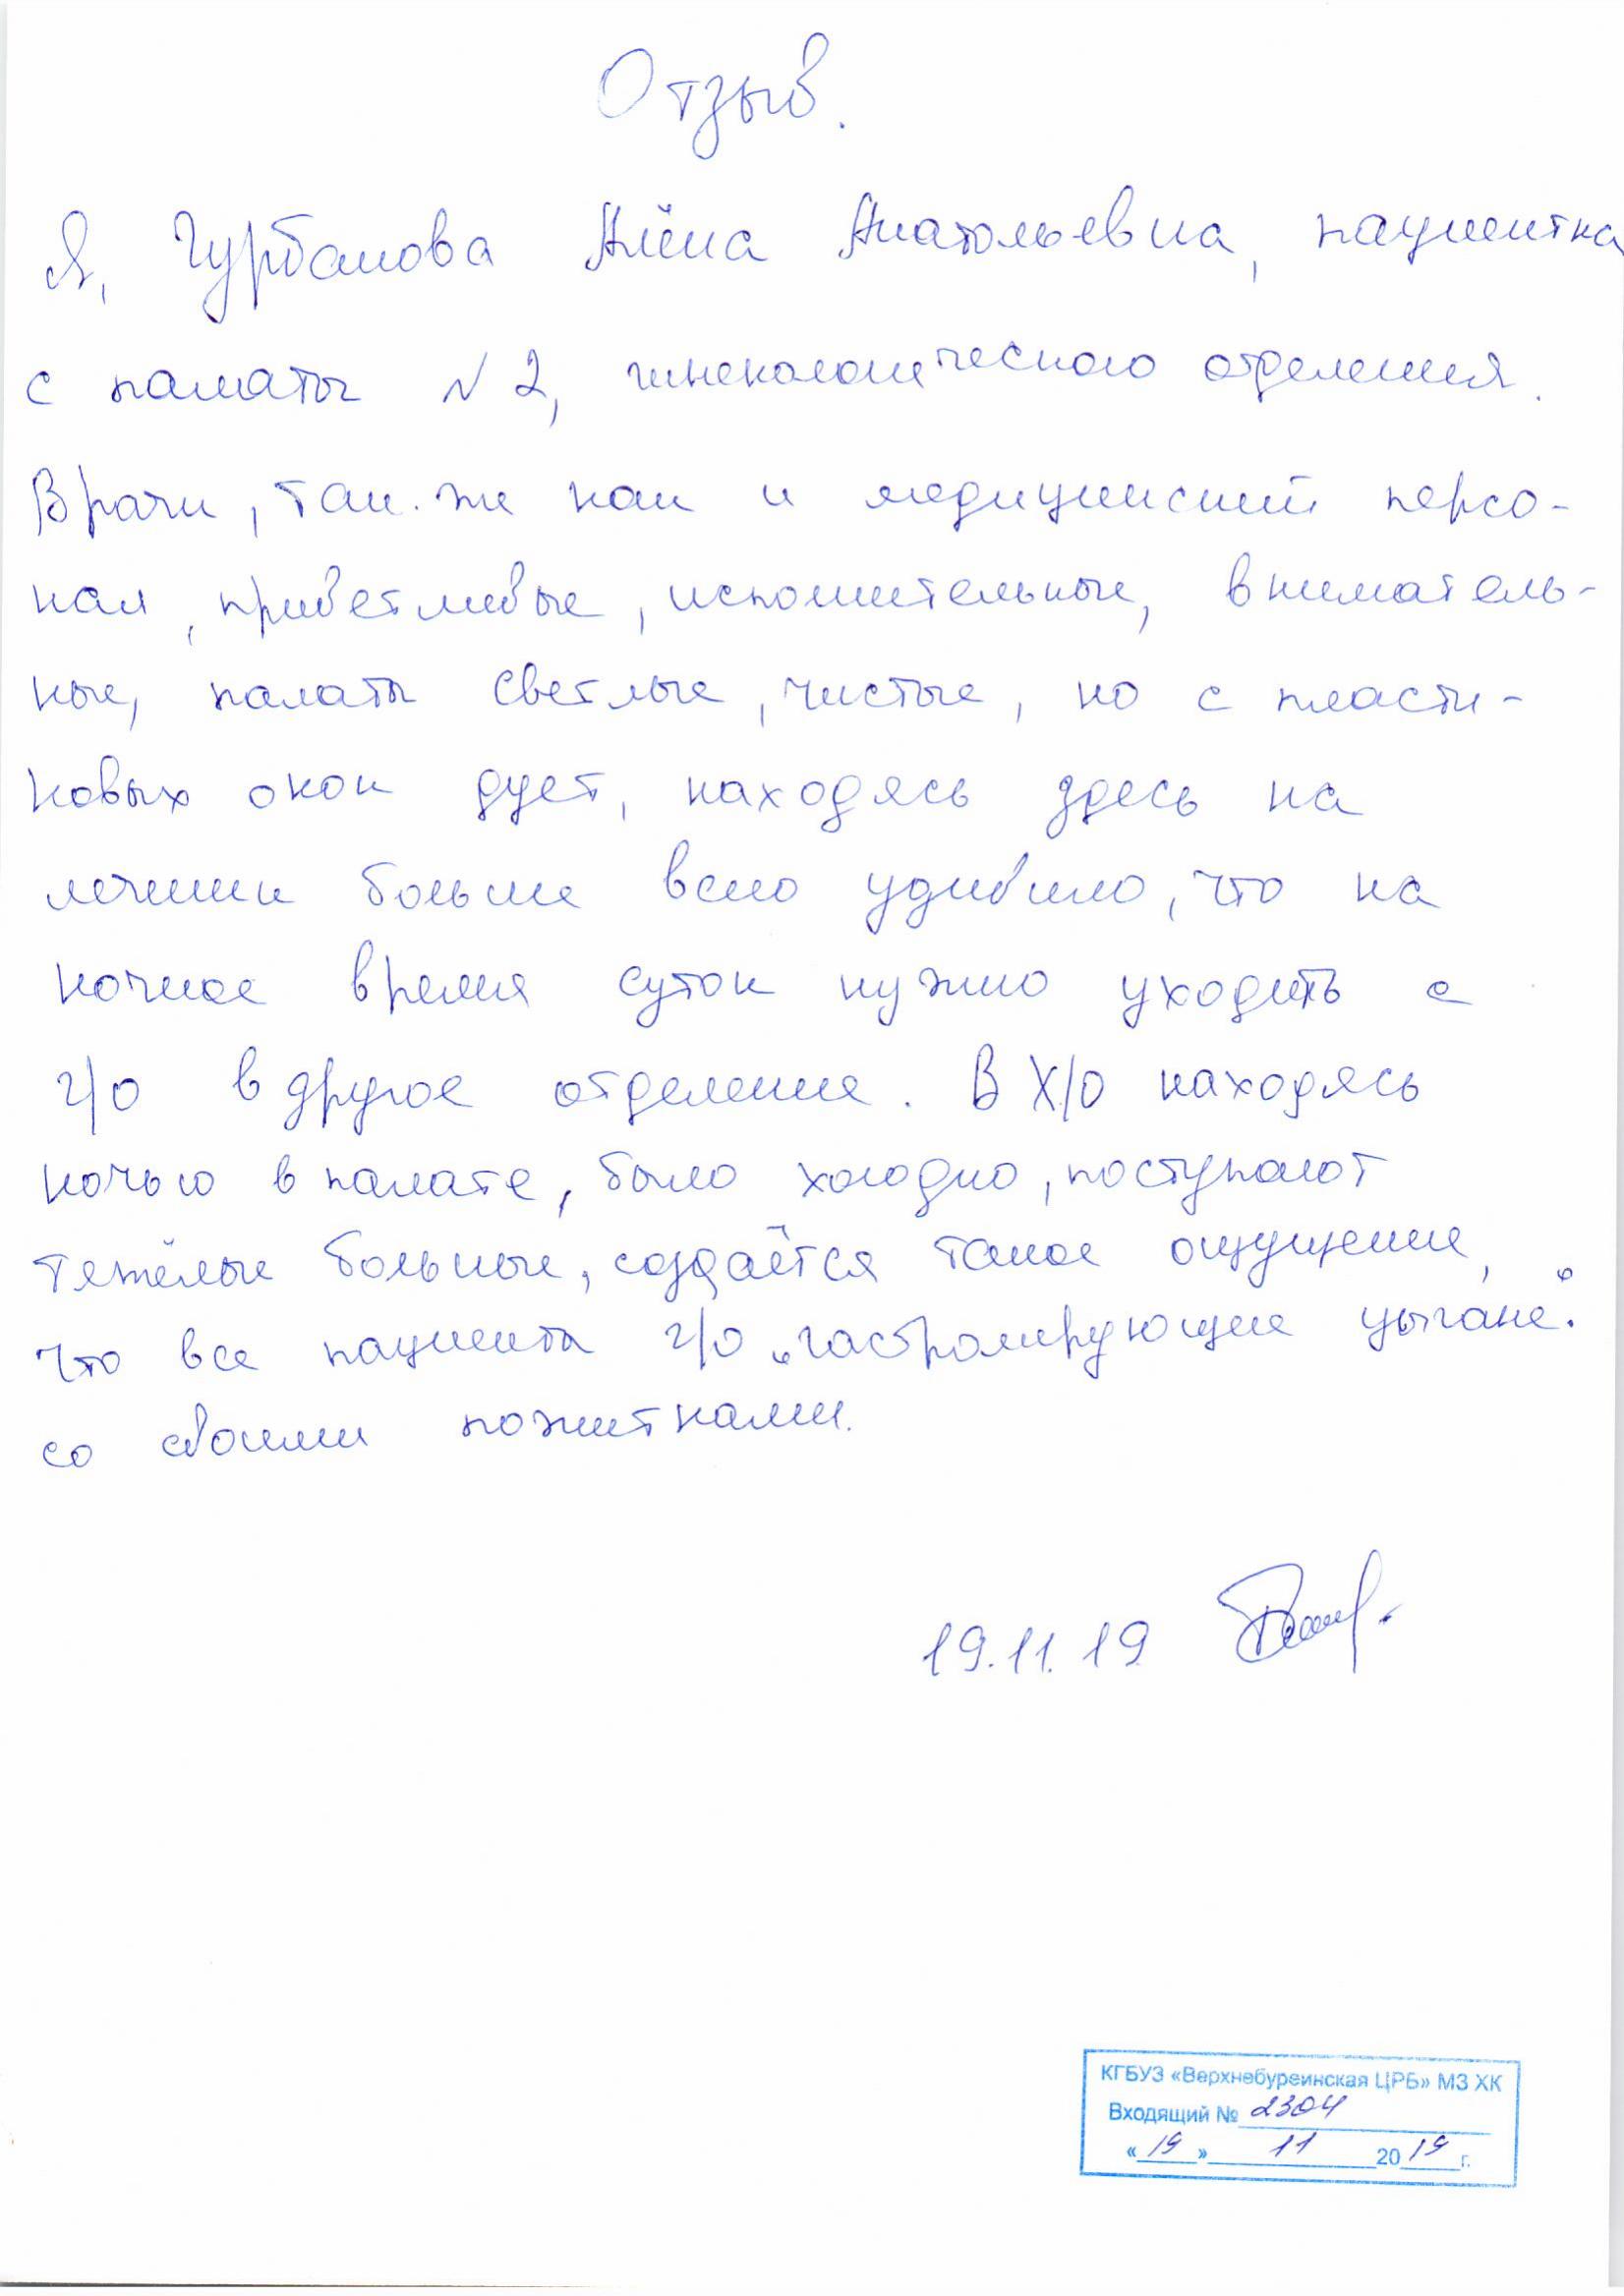 Отзыв.
Я, Гурбанова Алёна Анатольевна, пациентка
с палаты № 2, гинекологического отделения.
Врачи, так же как и медицинский персо-
нал, приветливые, исполнительные, вниматель-
ные, палаты светлые, чистые, но с пласти-
ковых окон дует, находясь здесь на
лечении больше всего удивило, что на
ночное время суток нужно уходить с
г/о в другое отделение. В Х/О находясь
ночью в палате, было холодно, поступают
тяжёлые больные, создаётся такое ощущение,
что все пациенты г/о „гастролирующие цыгане“.
со своими пожитками.
19.11.19
КГБУЗ «Верхнебуреинская ЦРБ» МЗ ХК
Входящий № 2304
«19» 11 2019 г.